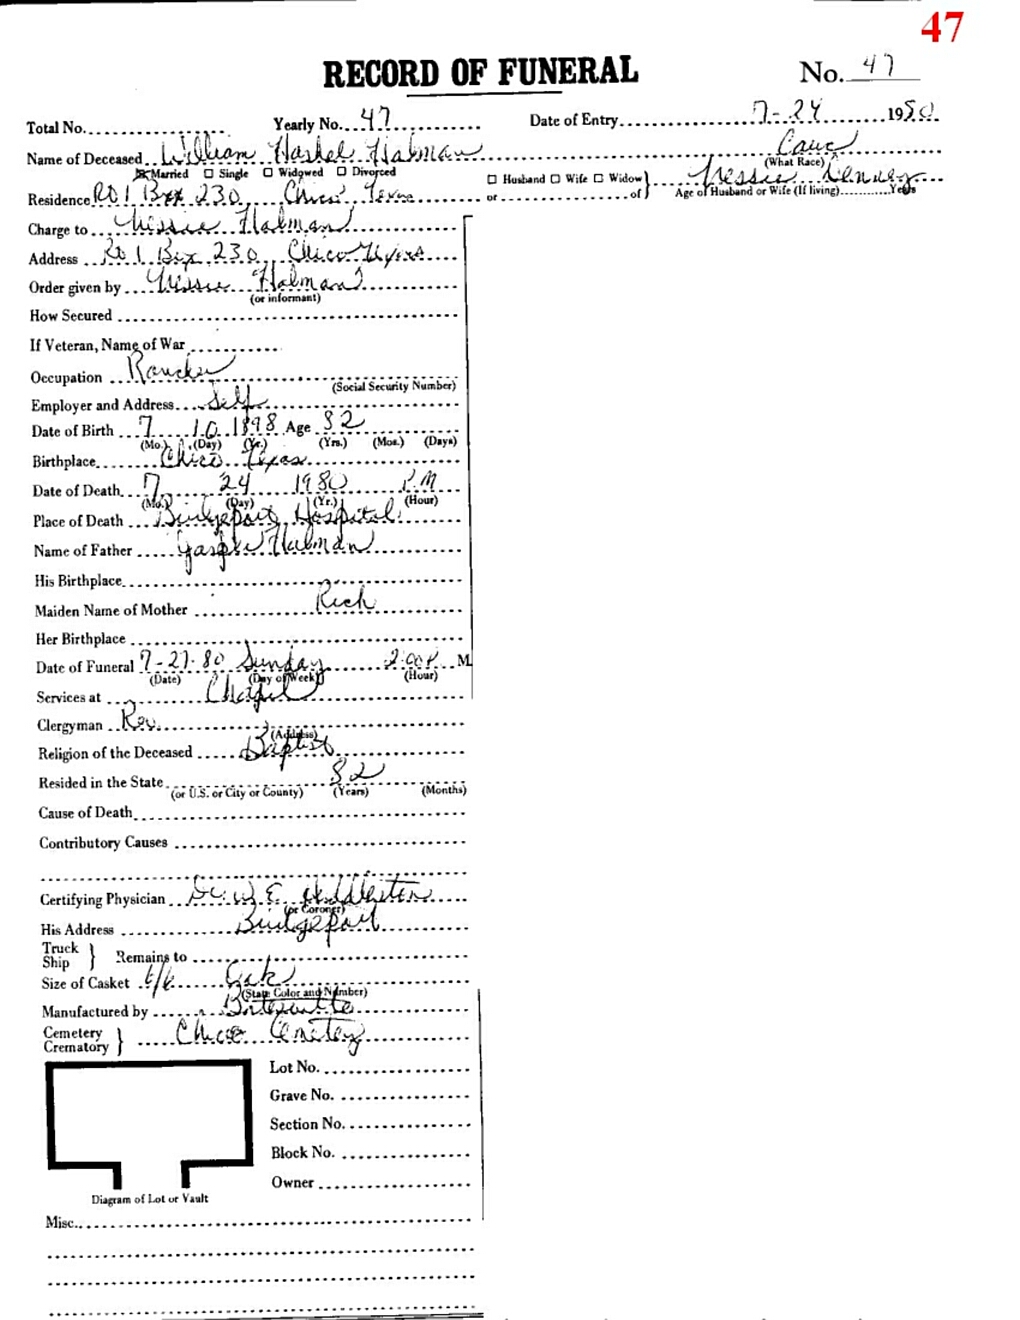 47
RECORD OF FUNERAL No. 47
Total No. Yearly No. 47 Date of Entry 7-24 1980
Name of Deceased William Haskel Halman Cauc
(What Race)
☒ Married ☐ Single ☐ Widowed ☐ Divorced ☐ Husband ☐ Wife ☐ Widow } Nessie
or of Age of Husband or Wife (If living) Years
Residence Rt 1 Box 230 Chico Texas
Charge to Nessie Halman
Address Rt 1 Box 230 Chico
Order given by Nessie Halman
(or informant)
How Secured
If Veteran, Name of War
Occupation Rancher
(Social Security Number)
Employer and Address Self
Date of Birth 7 10 1898 Age 82
(Mo.) (Day) (Yr.) (Yrs.) (Mos.) (Days)
Birthplace Chico Texas
Date of Death 7 24 1980 P.M
(Mo.) (Day) (Yr.) (Hour)
Place of Death Bridgeport Hospital
Name of Father Halman
His Birthplace
Maiden Name of Mother Rich
Her Birthplace
Date of Funeral 7-27-80 Sunday 2:00 P. M.
(Date) (Day of Week) (Hour)
Services at Chapel
Clergyman Rev.
(Address)
Religion of the Deceased Baptist
Resided in the State 82
(or U.S. or City or County) (Years) (Months)
Cause of Death
Contributory Causes
Certifying Physician Dr. W. E. Huddleston
(or Coroner)
His Address Bridgeport
Truck
Ship } Remains to
Size of Casket 6/6 Oak
(State Color and Number)
Manufactured by
Cemetery
Crematory } Chico Cemetery
Lot No.
Grave No.
Section No.
Block No.
Owner
Diagram of Lot or Vault
Misc.